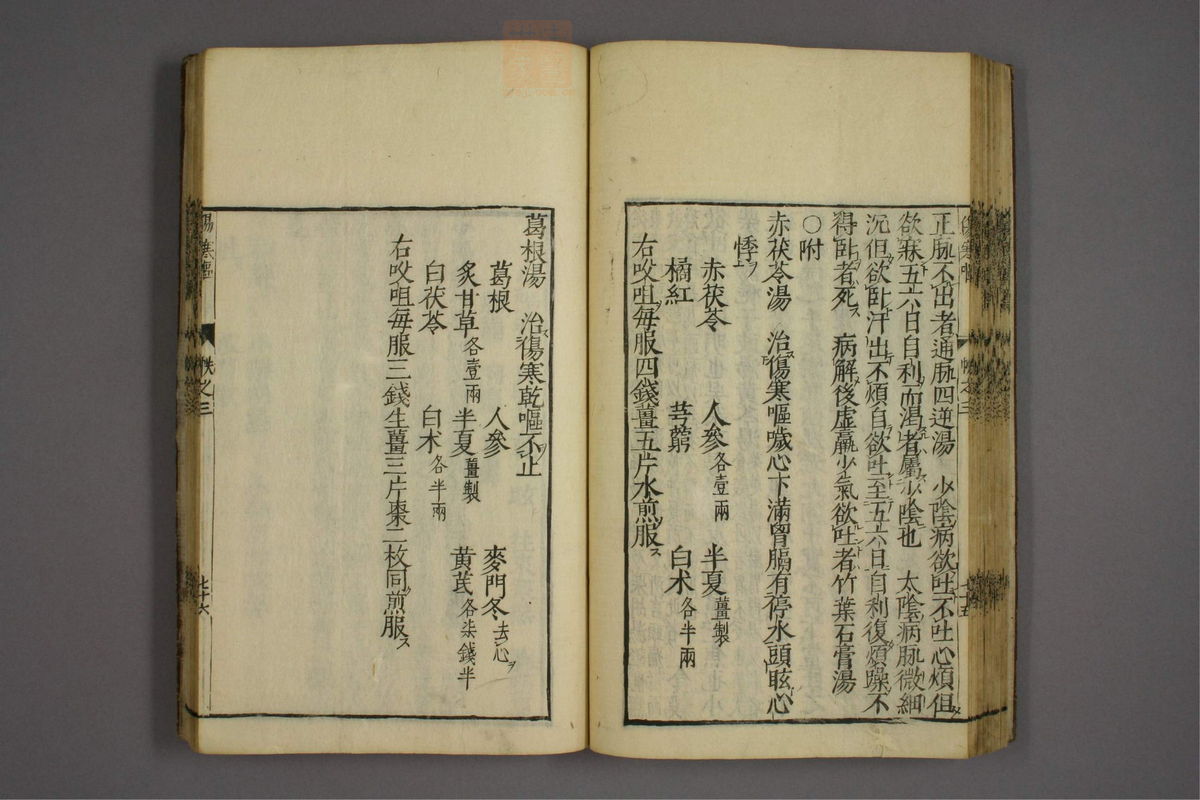 正脉不出者通脉四逆湯　少陰病欲吐不吐心煩但
欲寐五六日自利而渴者屬少陰也　太陰病脉微細
沉但欲臥汗出不煩自欲吐至五六日自利復煩躁不
得臥者死ス　病解後虛羸少氣欲吐者竹葉石膏湯
○附
赤茯苓湯　治傷寒嘔噦心下滿胷膈有停水頭眩心
悸ヲ
赤茯苓　人參各壹兩　半夏薑製
橘紅　芎藭　白朮各半兩
右㕮咀每服四錢薑五片水煎服ス
葛根湯　治傷寒乾嘔不止
葛根　人參　麥門冬去心ヲ
炙甘草各壹兩　半夏薑製　黃芪各柒錢半
白茯苓　白朮各半兩
右㕮咀每服三錢生薑三片棗二枚同煎服ス
傷寒嘔
帙之三
七十六
帙之三
七十五